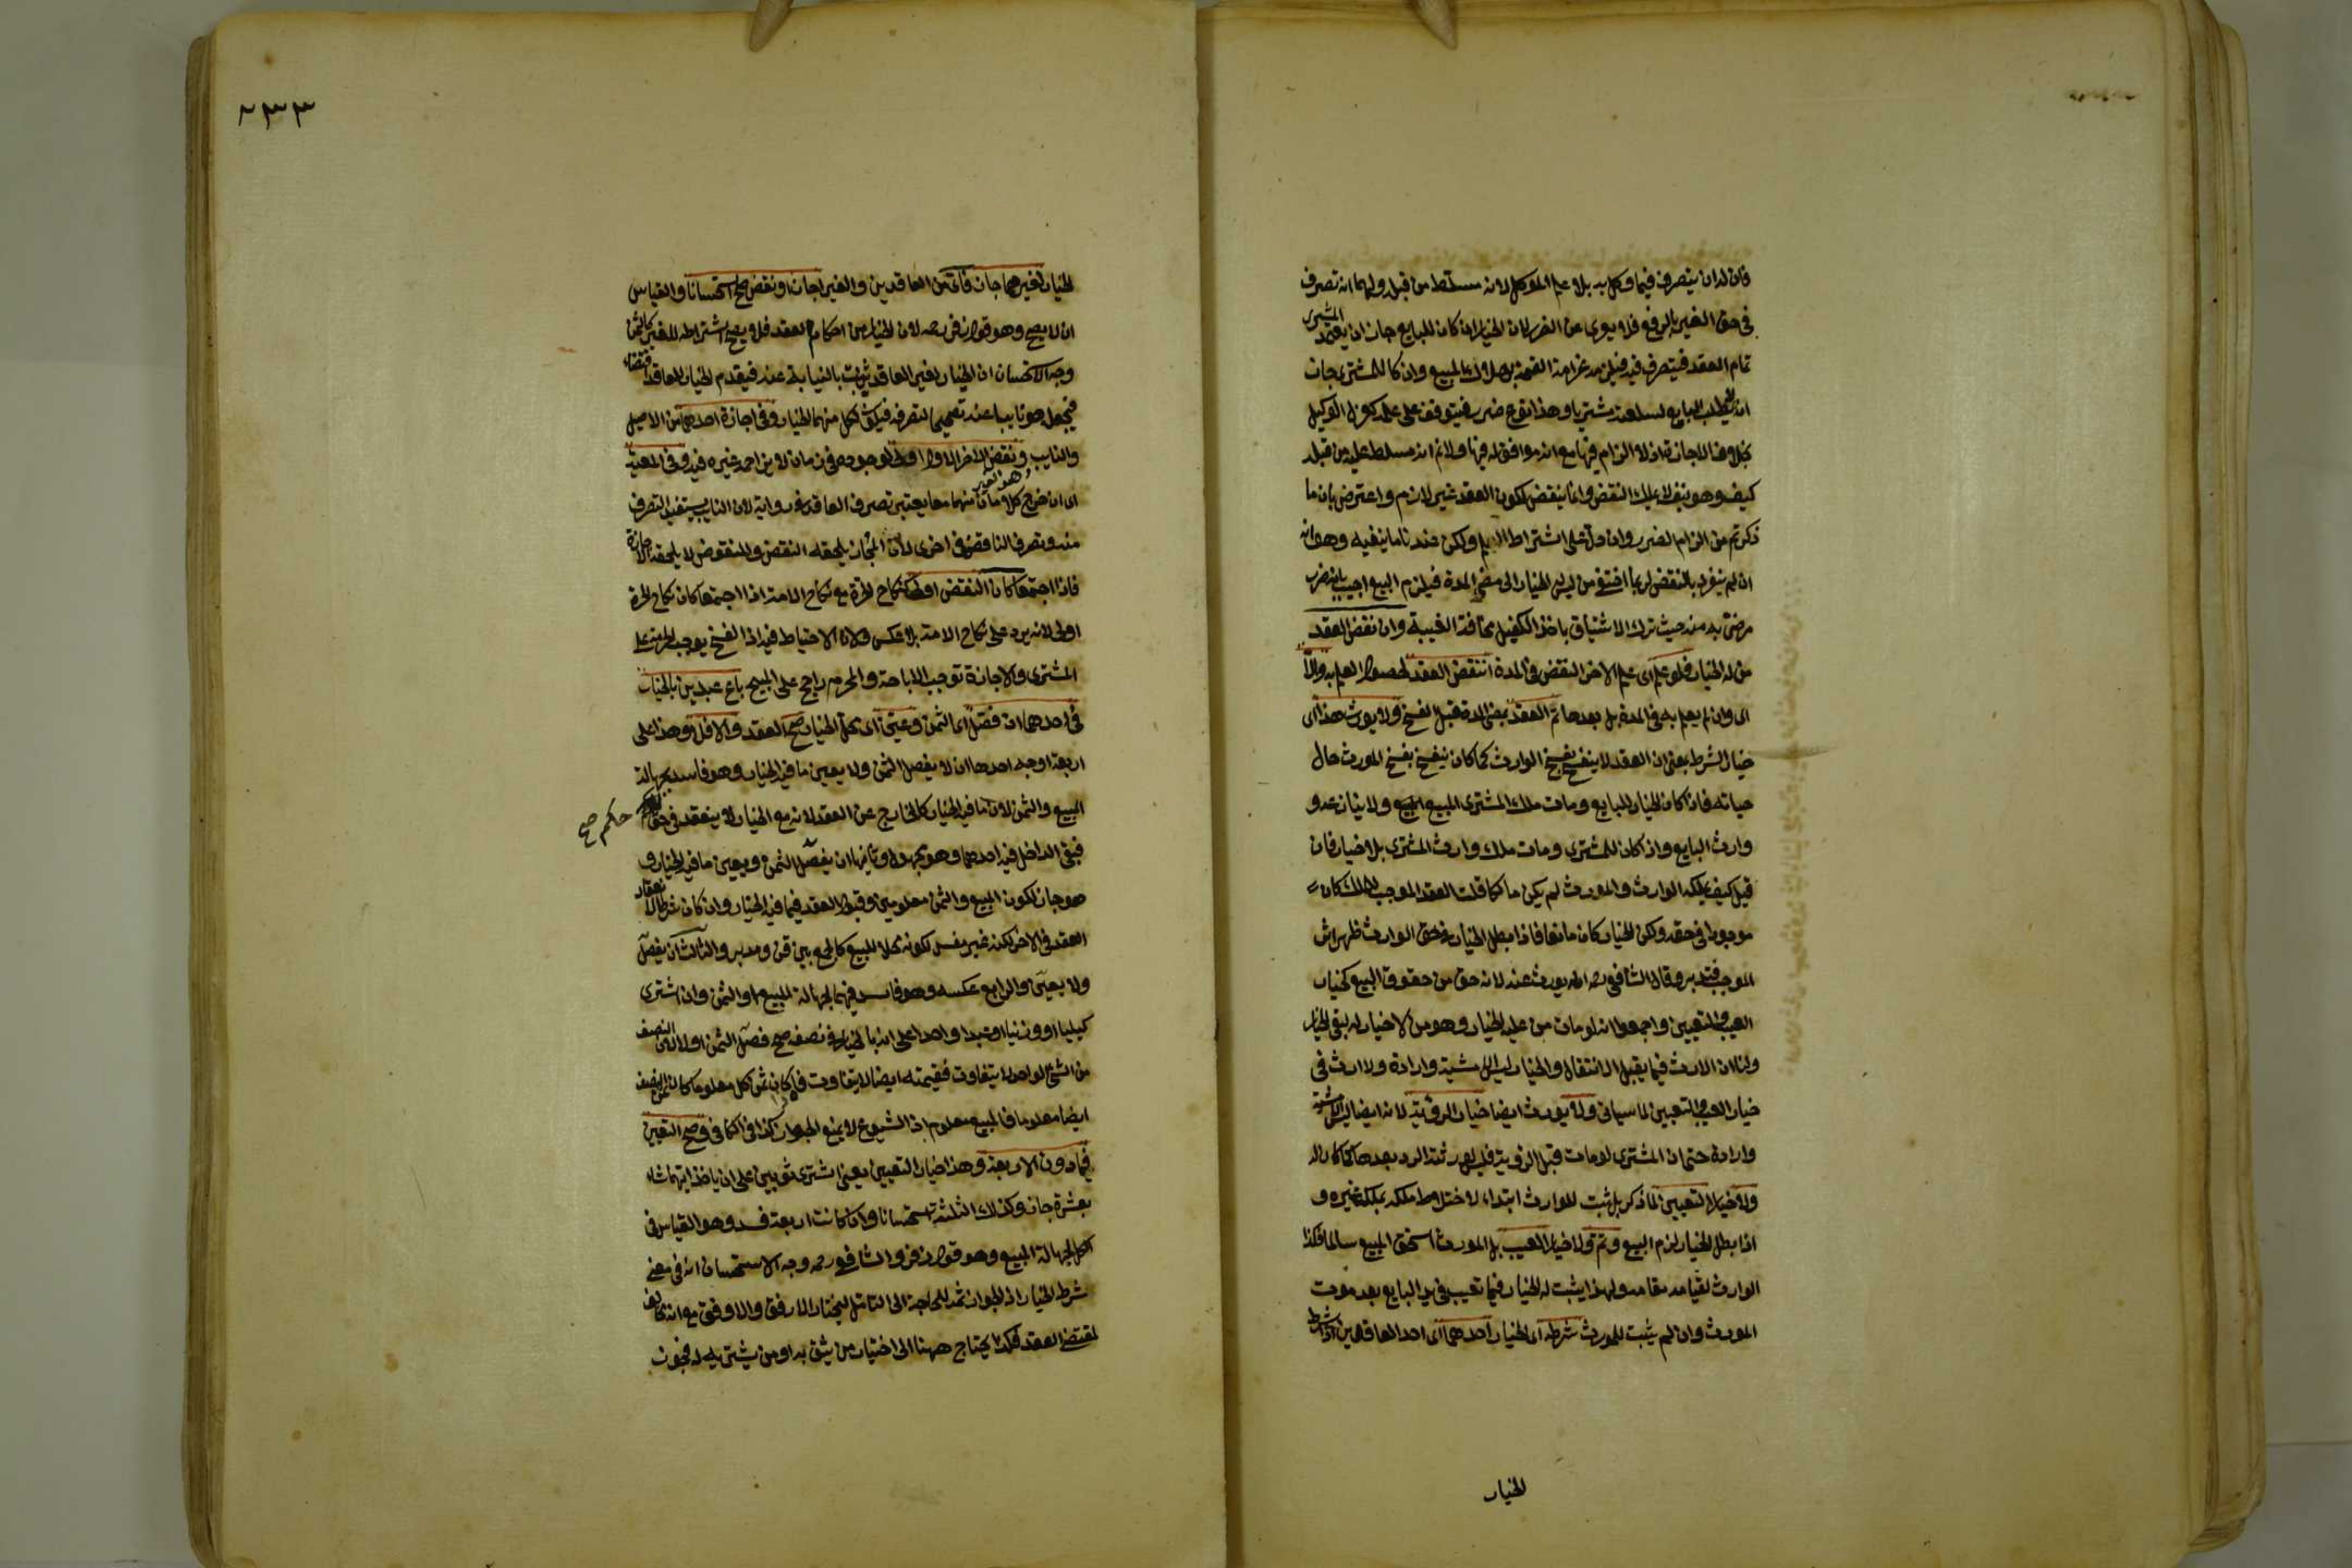 فان له ان يتصرف فيما وكل به بلا علم الموكل لانه مسلط من قبله ولهما انه تصرف
في حق الغير بالرفع فلا يعرى عن الضرر لان الخيار ان كان للبايع جاز ان يعتمد المشتري
تمام العقد فيتصرف فيه فيلزمه غرامة القيمة بهلاك المبيع وان كان للمشتري جاز
ان لا يطلب البايع لسلعته مشتريا وهذا نوع ضرر فيتوقف على علمه كعزل الوكيل
بخلاف الاجازة اذ لا الزام فيها مع انه موافق له فيها ولا نم انه مسلط عليه من قبله
كيف وهو بنفسه لا يملك النقض وانما ينقض لكون العقد غير لازم واعترض بان ما
ذكرتم من الزام الضرر وان دل على اشتراط العلم ولكن عندنا ما ينفيه وهو انه
ان لم ينفرد بالنقض لربما اختفى من ليس له الخيار الى مضي المدة فيلزم البيع اجيب بانه ضرر
مرضي به منه حيث ترك الاستيثاق باخذ الكفيل مخافة الغيبة وان نقض العقد
من له الخيار فلو علم اى علم الاخر النقض في المدة انتقض العقد لحصول العلم به والا
اى وان لم يعلم به في المدة بل بعدها تم العقد بمضي المدة قبل الفسخ ولا يورث هذا اى
خيار الشرط بمعنى ان العقد لا ينفسخ بفسخ الوارث كما كان ينفسخ بفسخ المورث حال
حياته فاذا كان الخيار للبايع ومات ملك المشتري المبيع ولا ينازعه
وارث البايع واذا كان للمشتري ومات ملك وارث المشتري بلا خيار فان
قيل كيف يملكه الوارث والمورث لم يكن مالكا قلت العقد الموجب للملك كان
موجودا في حقه ولكن الخيار كان مانعا فاذا بطل الخيار في حق الوارث ظهر اثر
الموجب فتدبر وقال الشافعي رحمه الله يورث عنه لانه حق من حقوق البيع كخيار
العيب والتعيين واجمعوا انه لو مات من عليه الخيار وهو من لا خيار له بقي الخيار
ولنا ان الارث فيما يقبل الانتقال والخيار ليس الا مشية وارادة ولا ارث في
خيار العيب والتعيين لما سياتي ولا يورث ايضا خيار الرؤية لانه ايضا ليس الا مشية
وارادة حتى ان المشتري لو مات قبل الرؤية فليس لورثته الرد بعدها كما كان له
ولا خيار التعيين لما ذكر بل ثبت للوارث ابتداء لاختلاط ملكه بملك غيره و
اذا بطل الخيار لزم البيع وتم ولا خيار العيب بل المورث استحق المبيع سالما فكذا
الوارث لقيامه مقامه ولهذا يثبت له الخيار فيما تعيب في يد البايع بعد موت
المورث وان لم يثبت للمورث شرطه اى الخيار احدهما اى احد العاقدين اذا شرط
الخيار
٢٣٣
الخيار لغيرهما جاز فاى من العاقدين والغير اجاز او نقض صح استحسانا والقياس
ان لا يصح وهو قول زفر رحمه لان الخيار من احكام العقد فلا يصح اشتراطه للغير كالثمن
وجه الاستحسان ان الخيار لغير العاقد يثبت بالنيابة عنه فيقدم الخيار للعاقد اقتضاء
فيجعل هو نايبا عنه تصحيحا لتصرفه فيكون لكل منهما الخيار وفي اجازة احدهما من الاصيل
والنايب ونقض الاخر الاول اولى لوجوده في زمان لا يزاحمه غيره فيه وفي المعية
اى ان خرج كلامان منهما معا يعتبر تصرف العاقد في رواية لان النايب يستفيد التصرف
منه وتصرف الناقض في اخرى لان المجاز يلحقه النقض والمنقوض لا يلحقه الاجازة
فاذا اجتمعا كان النقض اولى كنكاح الحرة مع نكاح الامة اذا اجتمعا كان نكاح الحرة
اولى لانه يرد على نكاح الامة بلا عكس ولان الاحتياط فيه اذ الفسخ يوجب الحرمة على
المشتري والاجازة توجب الاباحة والمحرم راجح على المبيح باع عبدين بالخيار
في احدهما ان فصل اى الثمن وعين اى محل الخيار صح العقد والا فلا وهذا على
اربعة اوجه احدها ان لا يفصل الثمن ولا يعين ما فيه الخيار وهو فاسد لجهالة
المبيع والثمن لان ما فيه الخيار كالخارج عن العقد لانه مع الخيار لا ينعقد في حق حكم صح
فبقى الداخل فيه احدهما وهو مجهول وثانيها ان يفصل الثمن ويعين ما فيه الخيار و
هو جايز لكون المبيع والثمن معلومين وقبول العقد فيما فيه الخيار وان كان شرطا لانعقاد
العقد في الاخر لكنه غير مفسد لكونه محلا للبيع كالجمع بين قن ومدبر والثالث ان يفصل
ولا يعين والرابع عكسه وهو فاسد فيهما لجهالة المبيع او الثمن وان اشترى
كيليا او وزنيا او عبدا واحدا على انه بالخيار في نصفه صح فصل الثمن اولا لان النصف
من الشئ الواحد لا يتفاوت فقيمته ايضا لا يتفاوت فاذا كان ثمن الكل معلوما كان ثمن النصف
ايضا معلوما فالمبيع معلوم اذ الشيوع لا يمنع الجواز كذا في الكافي وصح التعيين
فيما دون الاربعة وهذا خيار التعيين يعني اشترى ثوبين على ان ياخذ ايهما شاء
بعشرة جاز وكذلك الثلثة استحسانا وان كانت اربعة فسد وهو القياس في
الكل لجهالة المبيع وهو قول زفر والشافعي رحمه وجه الاستحسان انه في معنى
شرط الخيار اذ الجواز ثمه للحاجة الى التامل ليختار الارفق والاوفق مع انه مخالف
لمقتضى العقد فكذا يحتاج ههنا الى اختيار من يثق به او من يشتريه له فجوز